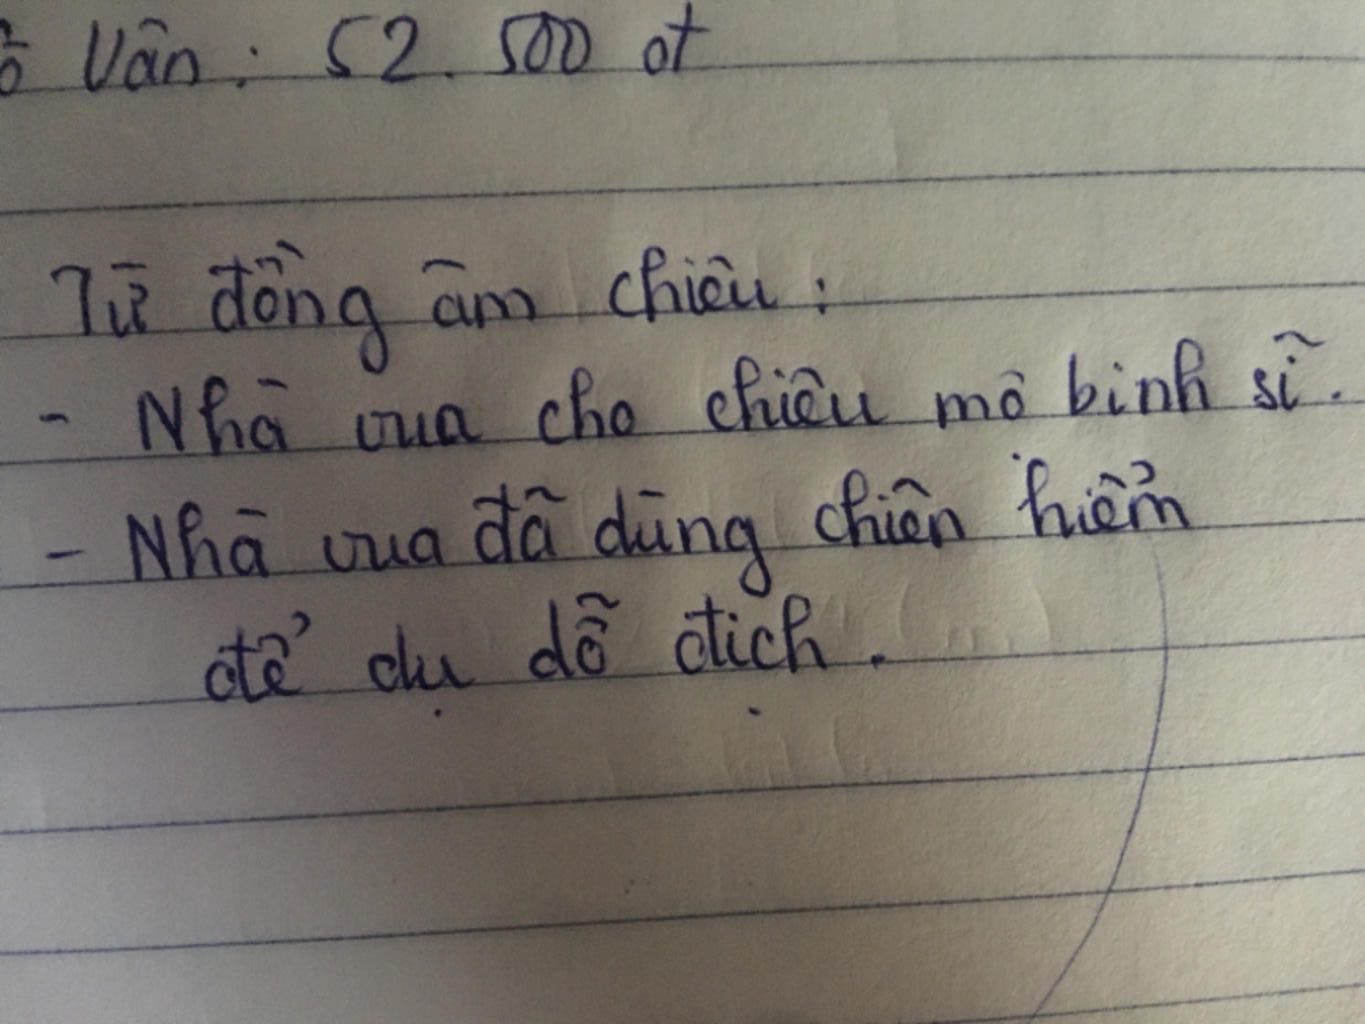 Vân: 52.500 đ
Từ đồng âm chiêu:
- Nhà vua cho chiêu mô binh sĩ.
- Nhà vua đã dùng chiên hiểm
để dụ dỗ địch.